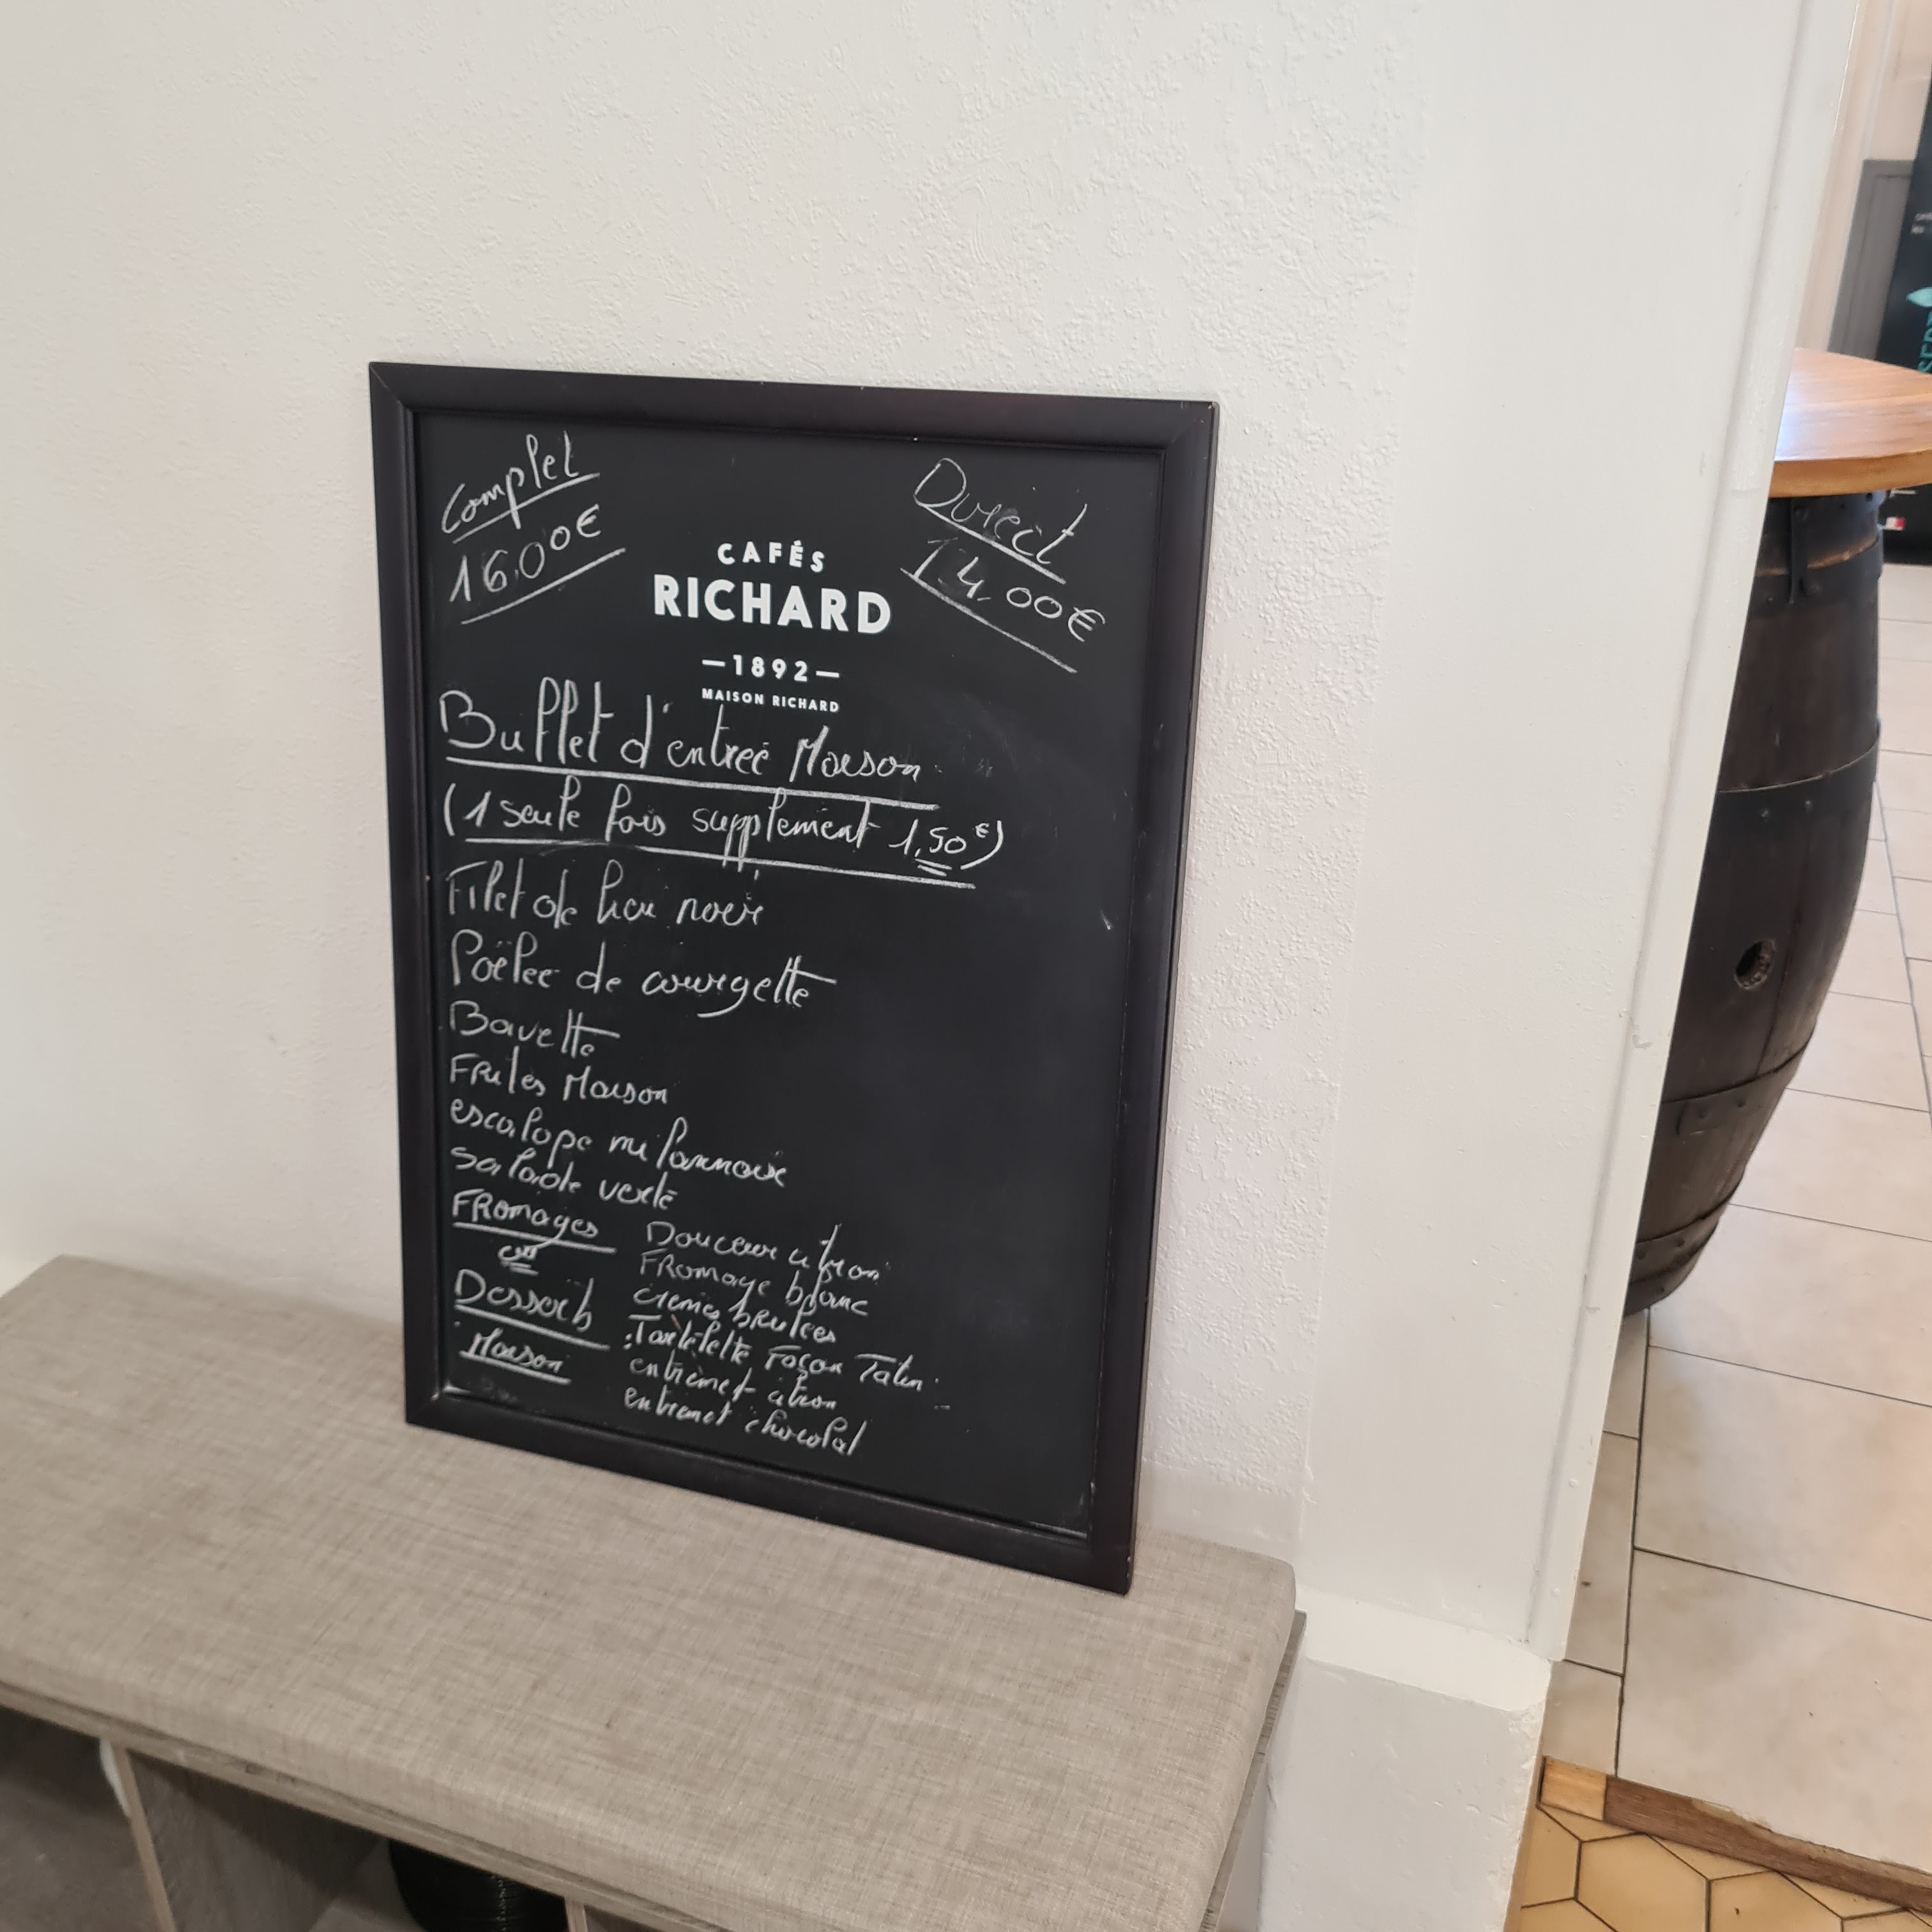 Complet
16.00€
Direct
14,00€
CAFÉS
RICHARD
—1892—
MAISON RICHARD
Buffet d'entreé Maison
(1 seule fois supplement 1,50€)
Filet de lieu noir
Poëlee de courgette
Bavette
Frites Maison
escalope milannaise
salade verte
FRomages
ou
Desserts
Maison
Douceur citron
FRomage blanc
cremes brulees
:Tartelette Façon Tatin
entremet citron
entremet chocolat